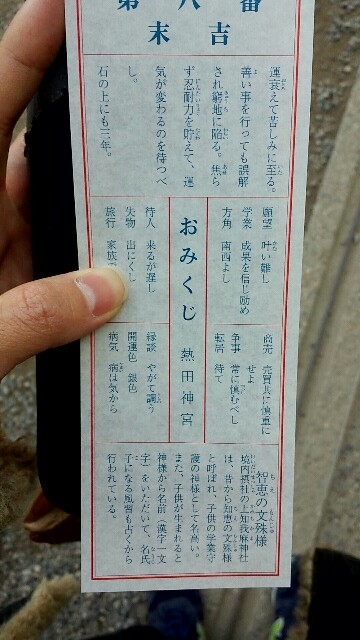 第八番
末吉
運衰えて苦しみに至る。
善い事を行っても誤解
され窮地に陥る。焦ら
ず忍耐力を貯えて、運
気が変わるのを待つべ
し。
石の上にも三年。
願望 叶い難し
学業 成果を信じ励め
方角 南西よし
商売 売買共に慎重に
せよ
争事 常に慎むべし
転居 待て
おみくじ 熱田神宮
待人 来るが遅し
失物 出にくし
旅行 家族で
縁談 やがて調う
開運色 銀色
病気 病は気から
智恵の文殊様
境内摂社の上知我麻神社
は、昔から知恵の文殊様
と呼ばれ、子供の学業守
護の神様として名高い。
また、子供が生まれると
神様から名前(漢字一文
字)をいただいて、名氏
子になる風習も古くから
行われている。